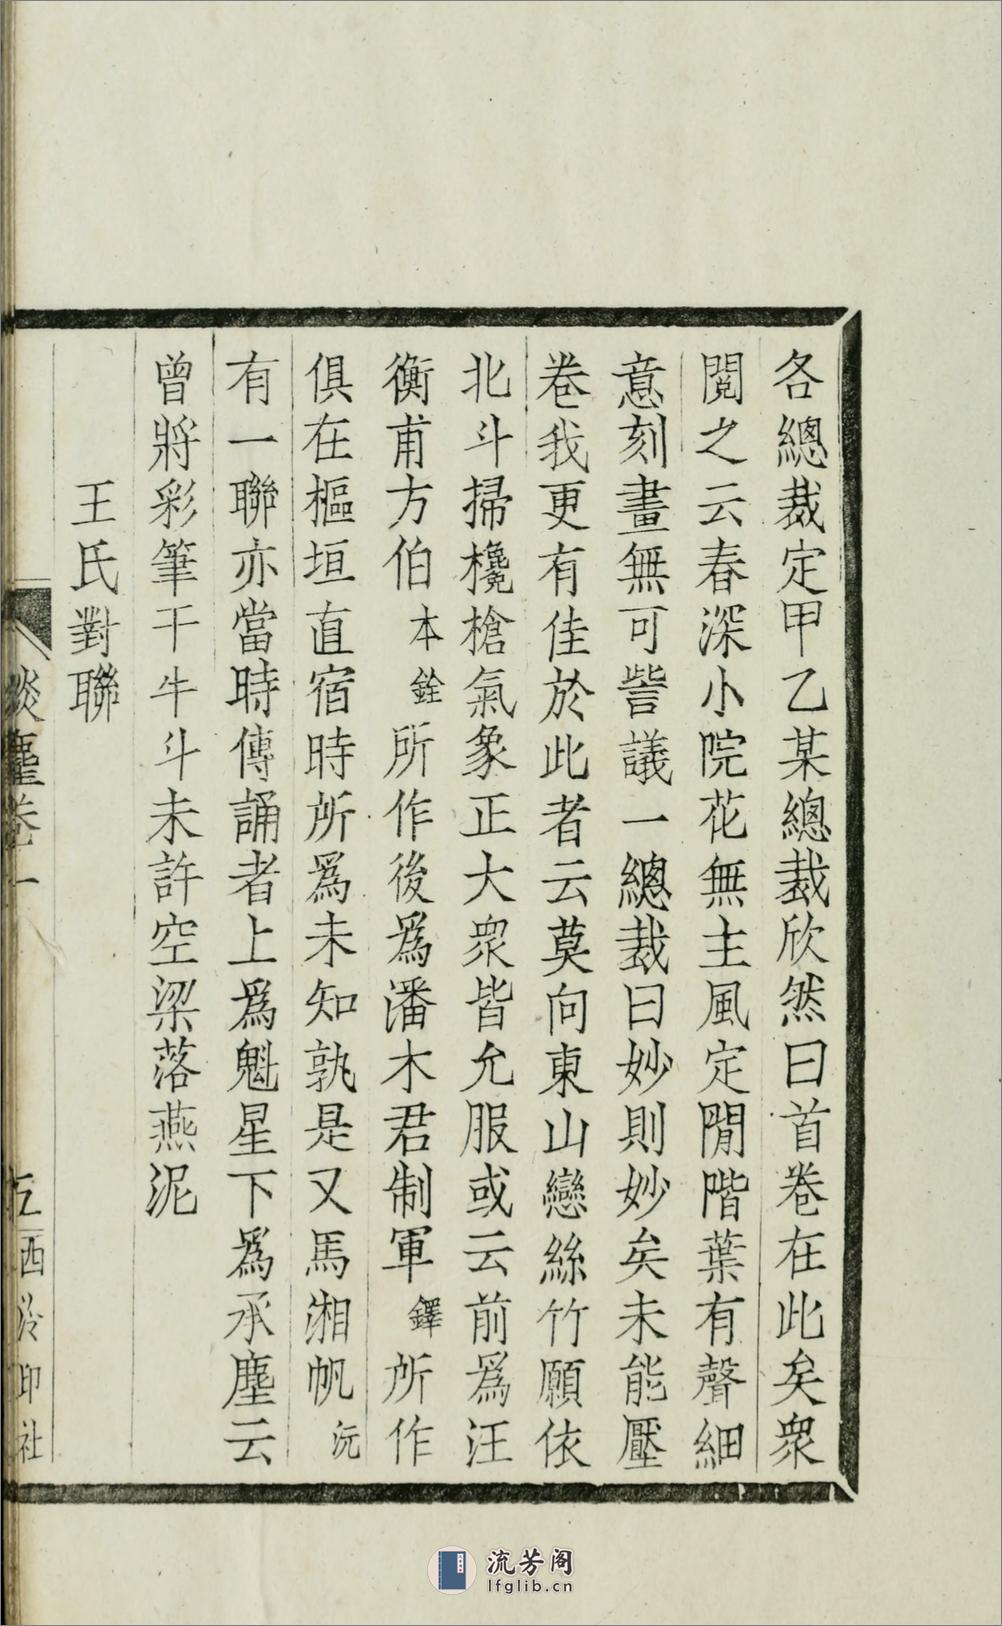 各總裁定甲乙某總裁欣然曰首卷在此矣衆
閱之云春深小院花無主風定閒階葉有聲細
意刻畫無可訾議一總裁曰妙則妙矣未能壓
卷我更有佳於此者云莫向東山戀絲竹願依
北斗掃欃槍氣象正大衆皆允服或云前爲汪
衡甫方伯本銓所作後爲潘木君制軍鐸所作
俱在樞垣直宿時所爲未知孰是又馬湘帆沅
有一聯亦當時傳誦者上爲魁星下爲承塵云
曾將彩筆干牛斗未許空梁落燕泥
王氏對聯
談麈卷一
五
西泠印社
流芳阁
lfglib.cn